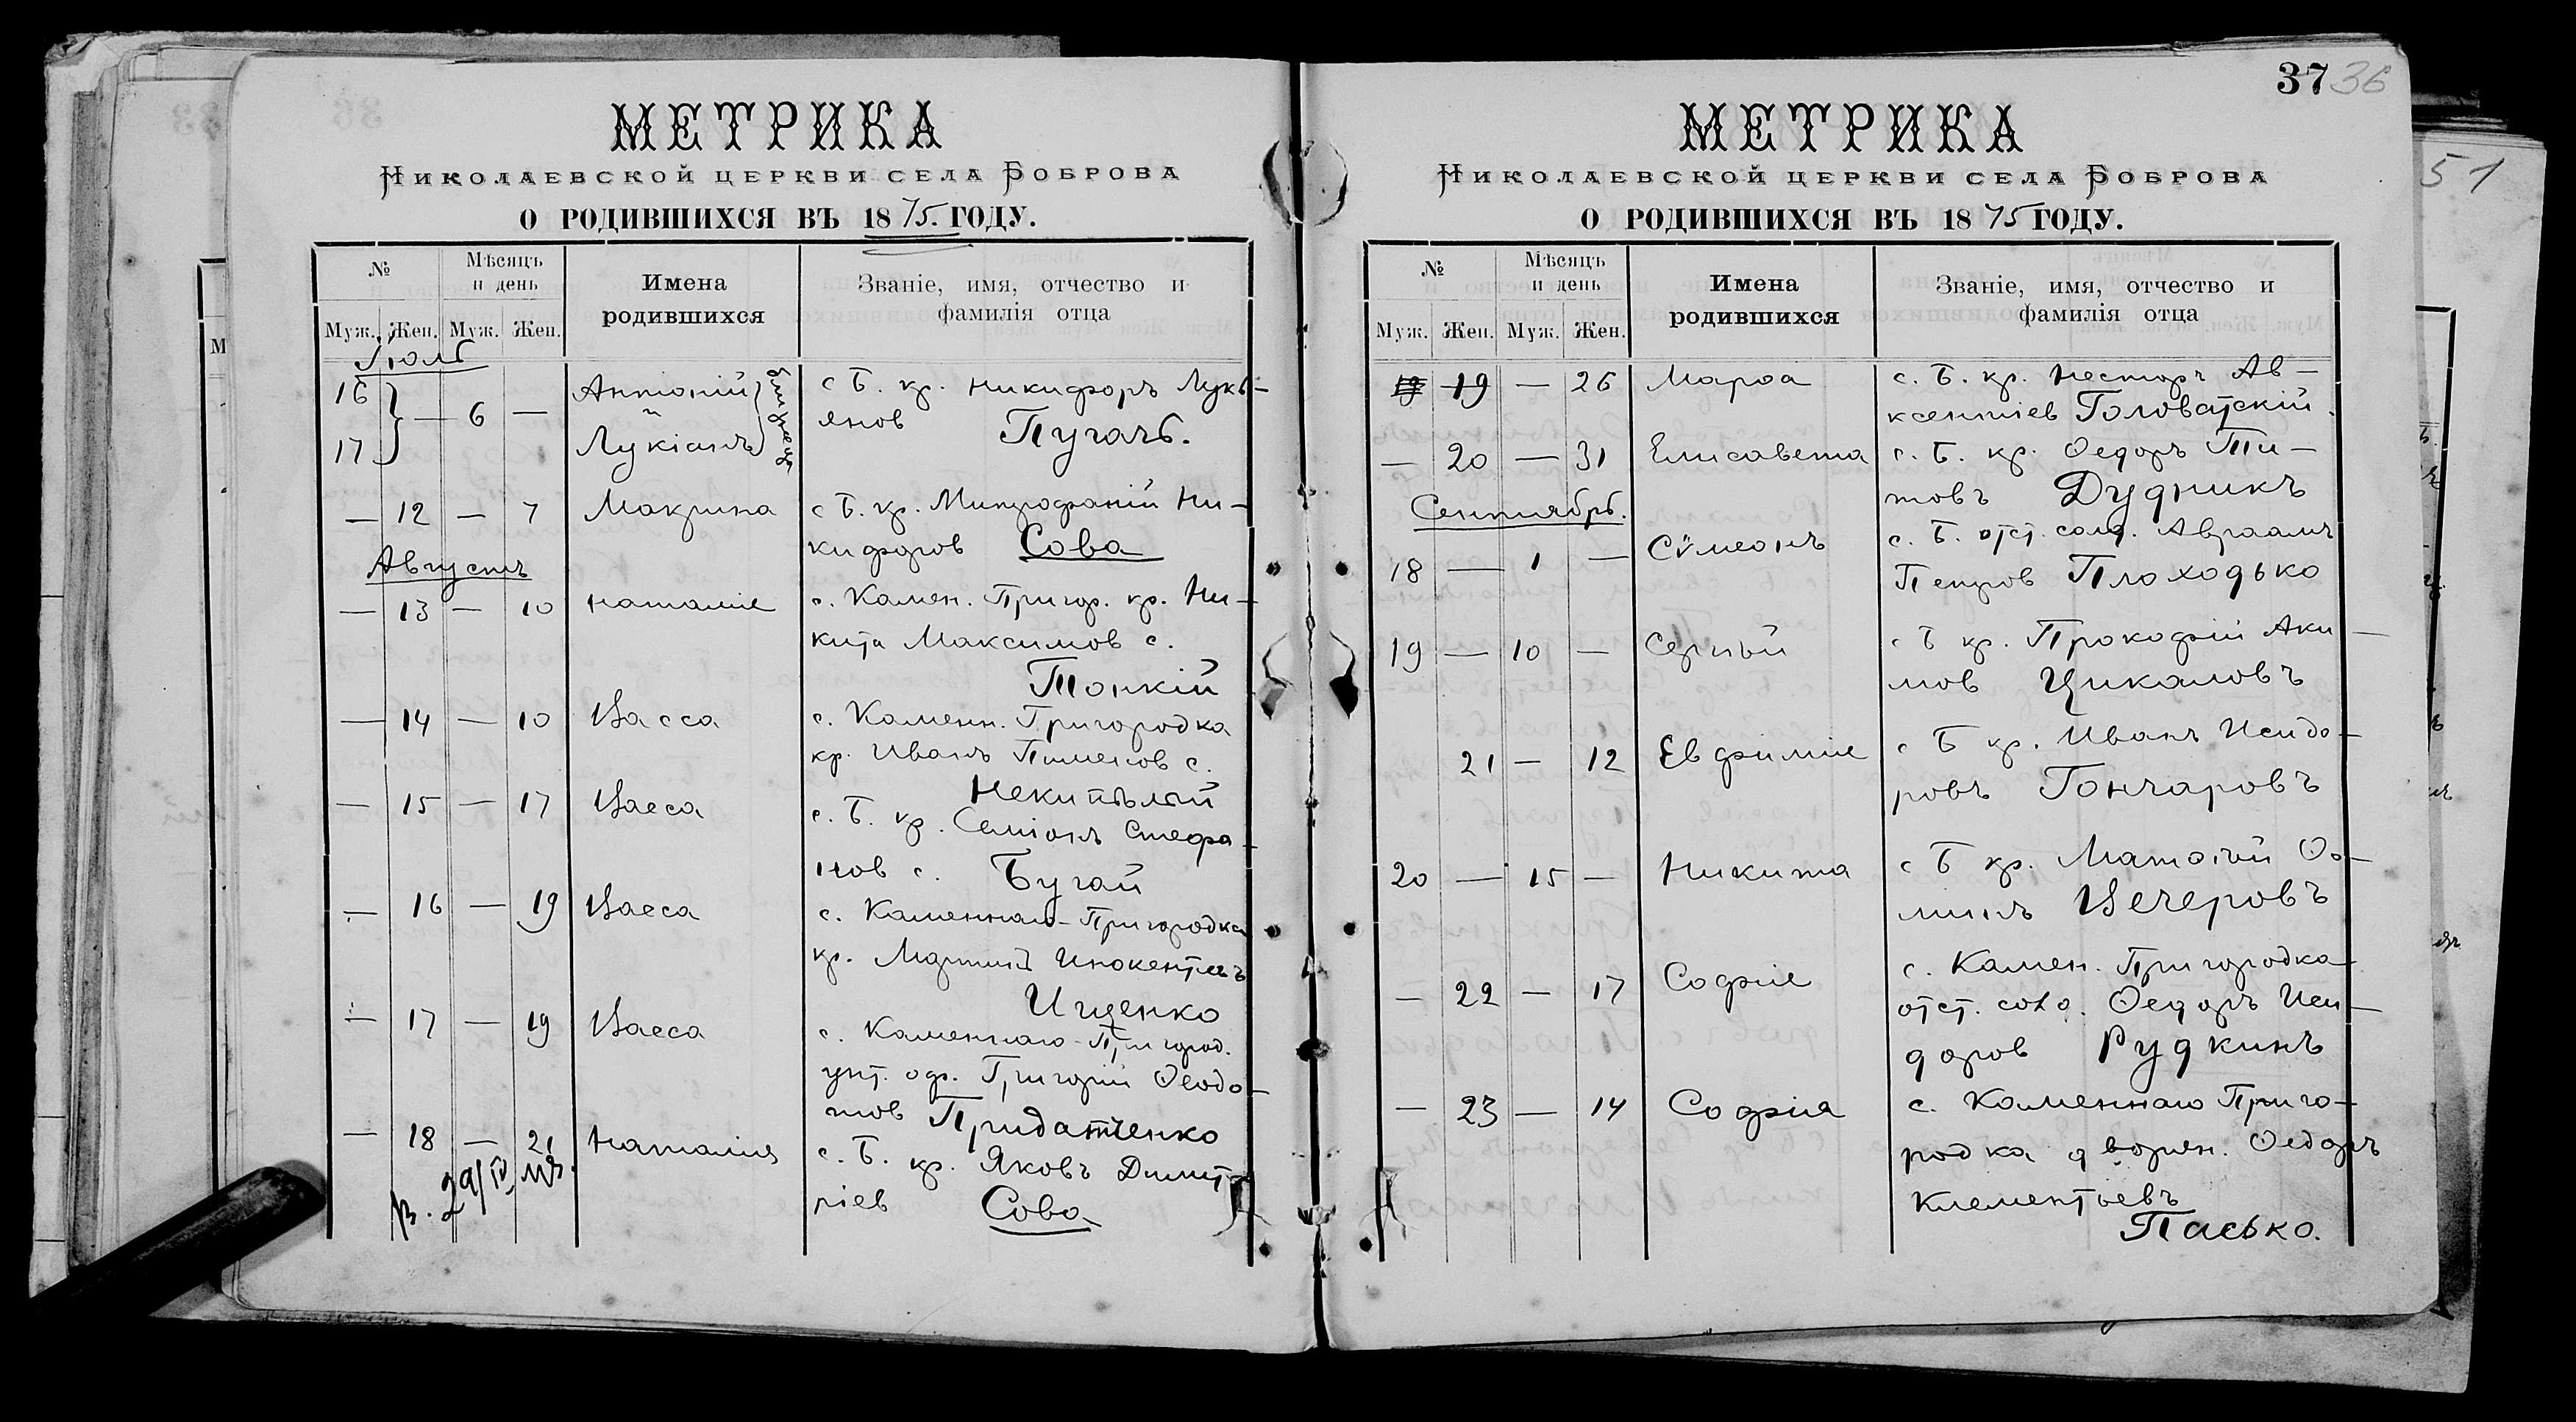 МЕТРИКА
НИКОЛАЕВСКОЙ ЦЕРКВИ СЕЛА БОБРОВА
О РОДИВШИХСЯ ВЪ 1875. ГОДУ.
№ Мѣсяцъ и день Имена родившихся Званіе, имя, отчество и фамилія отца
Муж. Жен. Муж. Жен.
Іюль
16 — 6 — Антоній с Б. кр. Никифоръ Лукь-
и близнецы янов Пугачь.
17 Лукіанъ
— 12 — 7 Макрина с Б. кр. Митрофаній Ни-
кифоров Сова
Августъ
— 13 — 10 Наталіе с. Камен. Пригор. кр. Ни-
кита Максимов с.
Тонкій
— 14 — 10 Васса с. Каменн. Пригородка
кр. Иванъ Пименов с.
Некипѣлый
— 15 — 17 Васса с. Б. кр. Семіонъ Стефа-
нов с. Бугай
— 16 — 19 Васса с. Каменнаго-Пригородка
кр. Мартинъ Инокентіевъ
Ищенко
— 17 — 19 Васса с. Каменнаго-Пригород.
унт. оф. Григорій Ѳеодо-
тов Придатченко
— 18 — 21 Наталия с. Б. кр. Яковъ Димит
ріев Сова
в. 29/IV
37 36
МЕТРИКА
НИКОЛАЕВСКОЙ ЦЕРКВИ СЕЛА БОБРОВА
О РОДИВШИХСЯ ВЪ 1875 ГОДУ.
№ Мѣсяцъ и день Имена родившихся Званіе, имя, отчество и фамилія отца
Муж. Жен. Муж. Жен.
19 — 26 Марѳа с. Б. кр. Несторъ Ав-
ксентіев Головатскій.
— 20 — 31 Елисавета с. Б. кр. Ѳедоръ Ти-
товъ Дудникъ
Сентябрь.
18 — 1 — Сѵмеонъ с. Б. отст. солд. Авраамъ
Петров Плоходько
19 — 10 — Сергѣй с Б кр. Прокофій Аки-
мов Цикаловъ
21 — 12 Евфиміе с Б кр. Иванъ Исидо-
ровъ Гончаровъ
20 — 15 — Никита с Б кр. Матѳій Ѳо-
минъ Вечеровъ
— 22 — 17 Софіе с. Камен. Пригородка
отст. солд. Ѳедоръ Иси-
доров Рудкинъ
— 23 — 14 Софія с. Каменнаго Приго-
родка дворян. Ѳедоръ
Клементьевъ
Пасько.
51